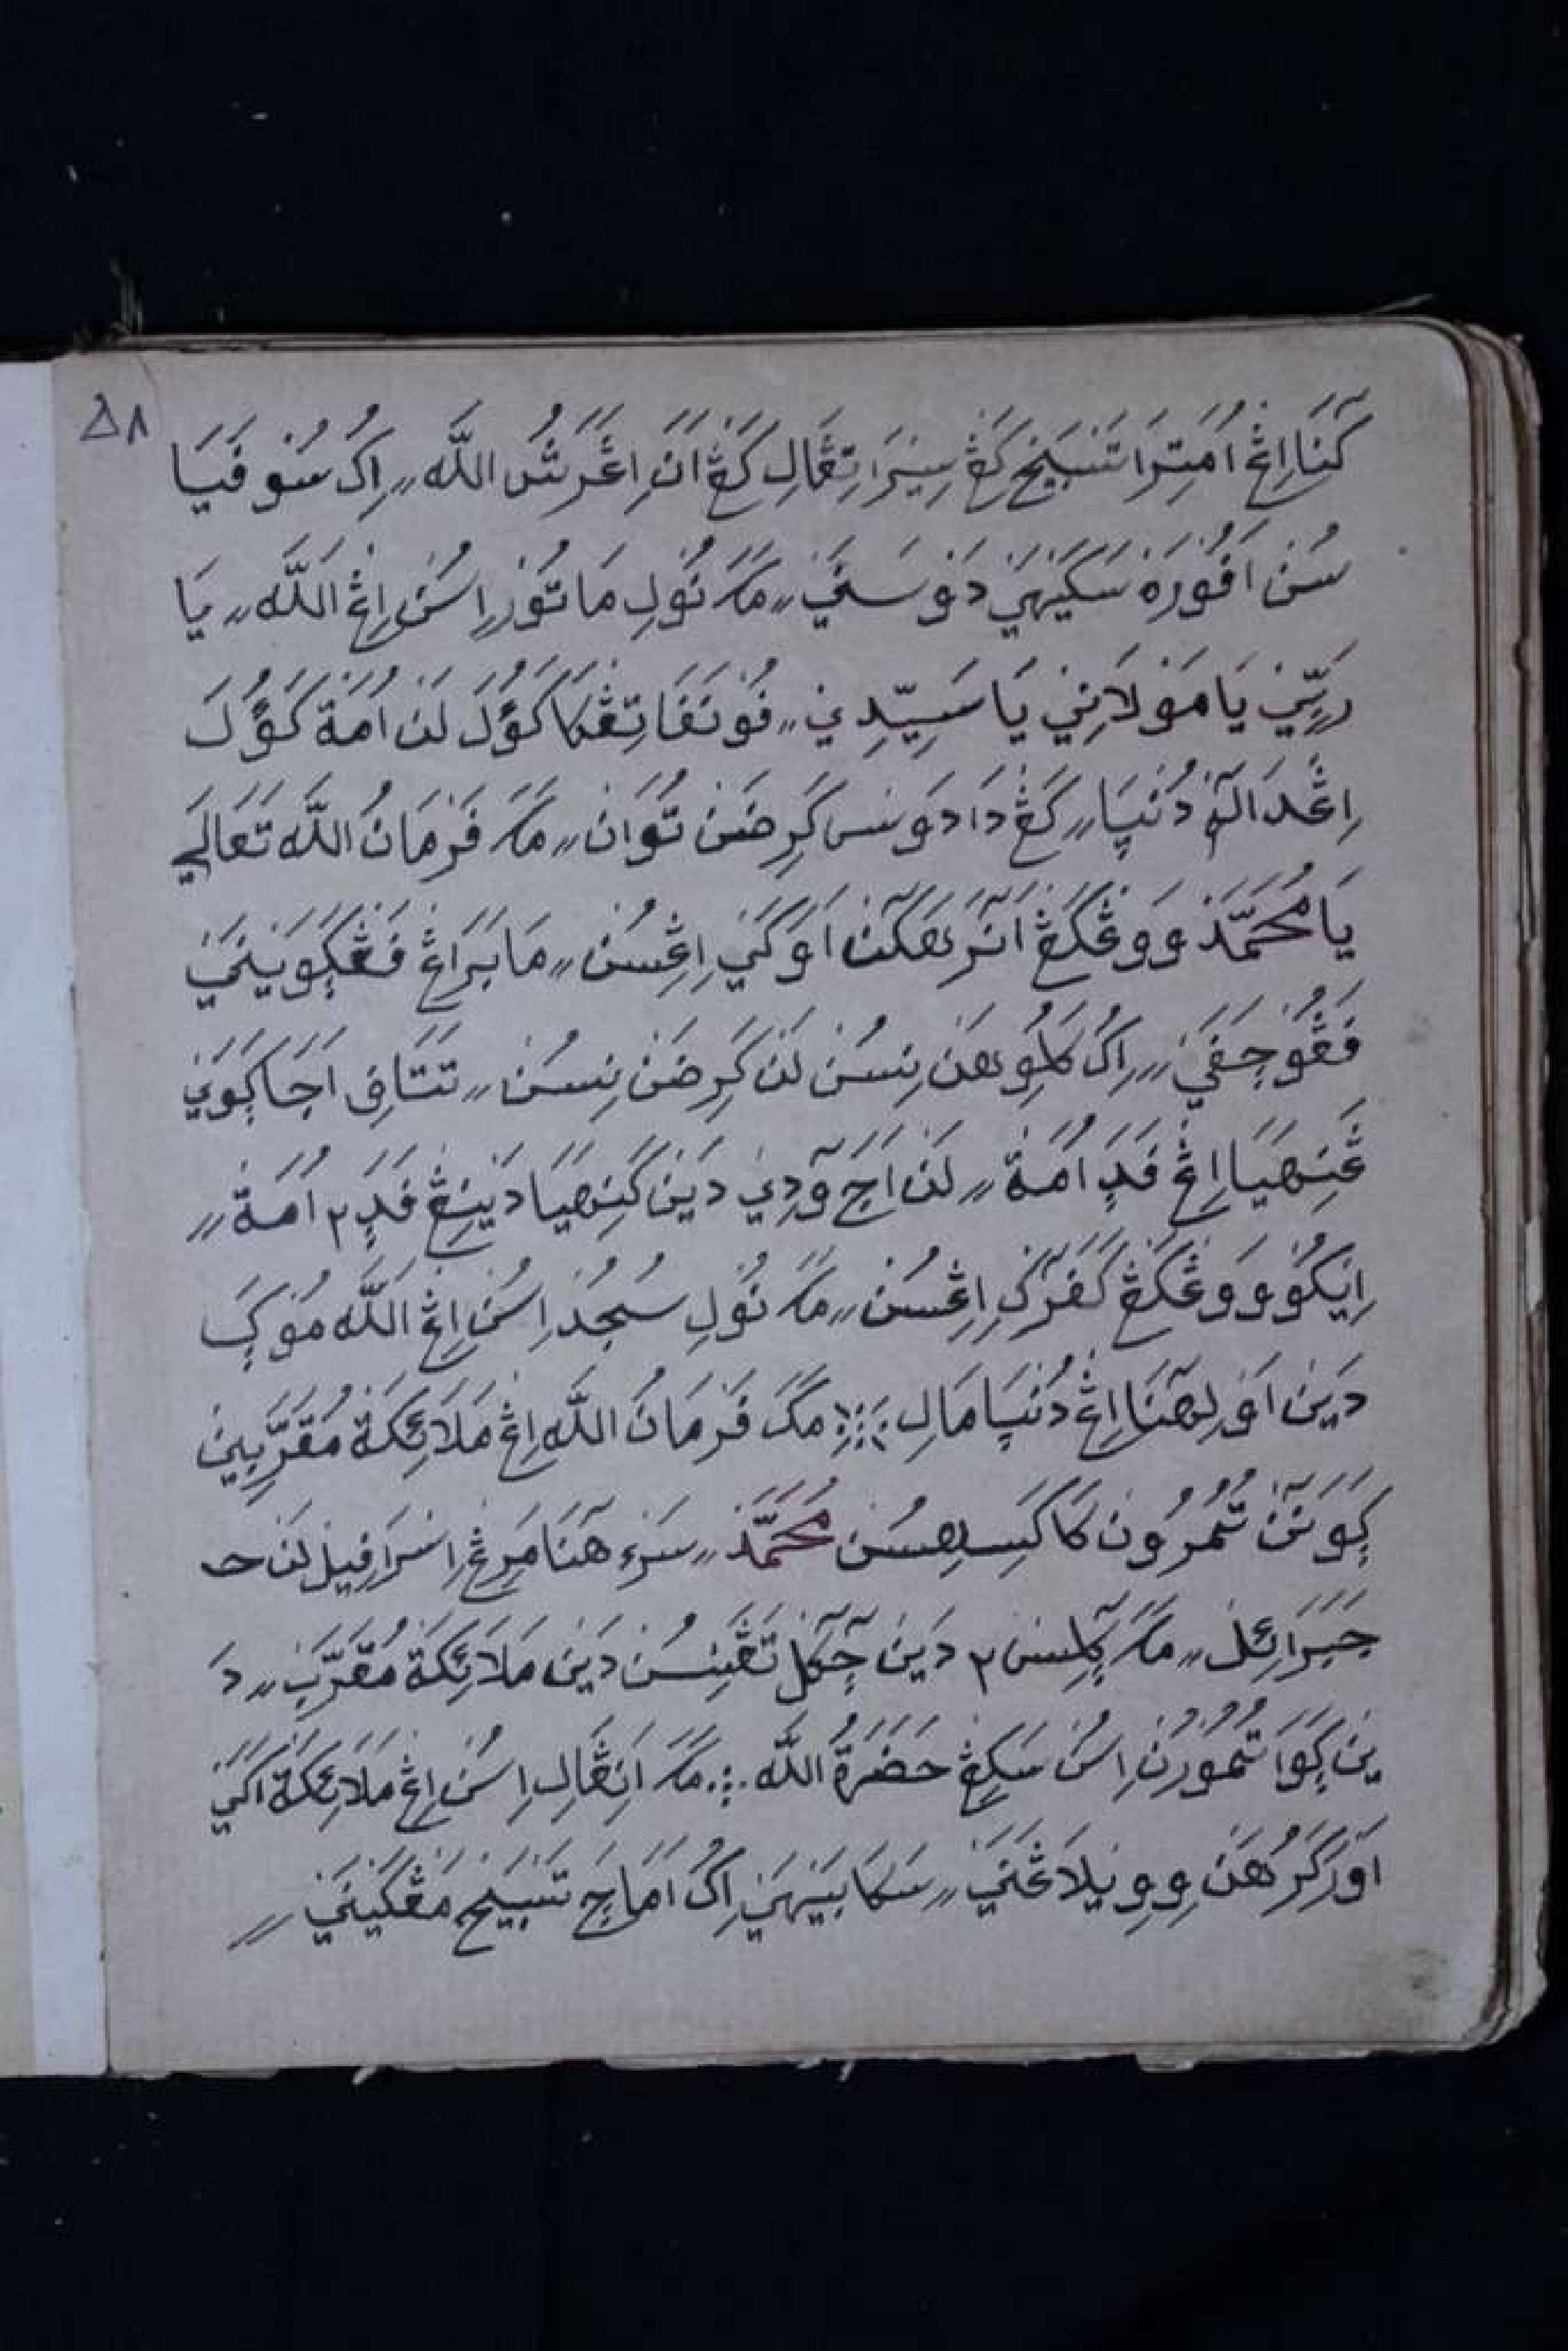 ٥٨
كَنَا اِڠْ اُمَتِرَا تَسْبِيْحْ كَڠْ سِيْرَا تِڠَالِ كَڠْ اَنَ اِڠْ عَرَشُ اللّٰه ,, اِكُ سُوفَيَا
سُنْ اَفُوْرَهْ سَكَيْهَيْ دَوْسَنَيْ ,, مَكَ نُولِ مَاتُوْرْ اِسُنْ اِڠْ اَللّٰه ,, يَا
رَبِّيْ يَا مَوْلَانِيْ يَا سَيِّدِيْ ,, فُوْنَفَا تِڠْكَا كَوُلَ لَنْ اُمَةْ كَوُلَ
اِڠْدَالَمْ دُنْيَا ,, كَڠْ دَادَوْسْ كَرِضَنْ تُوَانْ ,, مَكَ فَرْمَانُ اللّٰه تَعَالَى
يَا مُحَمَّدْ وَوڠْكَڠْ اَنَرَهَكَنْ اَوَكَيْ اِڠْسُنْ ,, مَابَرَاڠْ فَڠْكَوَيْنَيْ
فَڠُوْچَفَيْ ,, اِكُ كَلُوهَنْ نِسُنْ لَنْ كَرِضَنْ نِسُنْ ,, تَتَافِ اَجَا كَوَيْ
عَنِهَيَا اِڠْ فَدَ اُمَةْ ,, لَنْ اَجَ وَدِيْ دَيْنْ كَنِهَيَا دَيْنِڠْ فَدَ٢ اُمَةْ ,,
اِيْكُوْ وَوڠْكَڠْ كَفَرَكْ اِڠْسُنْ ,, مَكَ نُولِ سُجُدْ اِسُنْ اِڠْ اَللّٰه مُوْكَ
دَيْنْ اَوْلِهَنَا اِڠْ دُنْيَا مَالِ ؞ مَكَ فَرْمَانُ اللّٰه اِڠْ مَلَائِكَةْ مُقَرَّبِيْنَ
كَوَنَنْ تُمُرُونْ كَاكَسِهِسُنْ مُحَمَّدْ ,, سَرْءَ هَنَا مَرِڠْ اِسْرَافِيْلْ لَنْ ج
جَبَرَائِلْ ,, مَكَ كَلِسْ٢ دَيْنْ چَكَلْ تَڠَنِسُنْ دَيْنْ مَلَائِكَةْ مُقَرَّبْ ,, دَ
يْنْ كَوَا تُمُوْرُنْ اِسُنْ سَكِڠْ حَضْرَةُ اللّٰه ؞ مَكَ اَنِڠَالِ اِسُنْ اِڠْ مَلَائِكَةْ اَكَيْ
اَوْرَ كَرُهَنْ وِوِيْلَاڠَنَيْ ,, سَكَابَيْهَيْ اِكُ اَمَاچَ تَسْبِيْحْ مَڠْكَيْنَيْ ,,